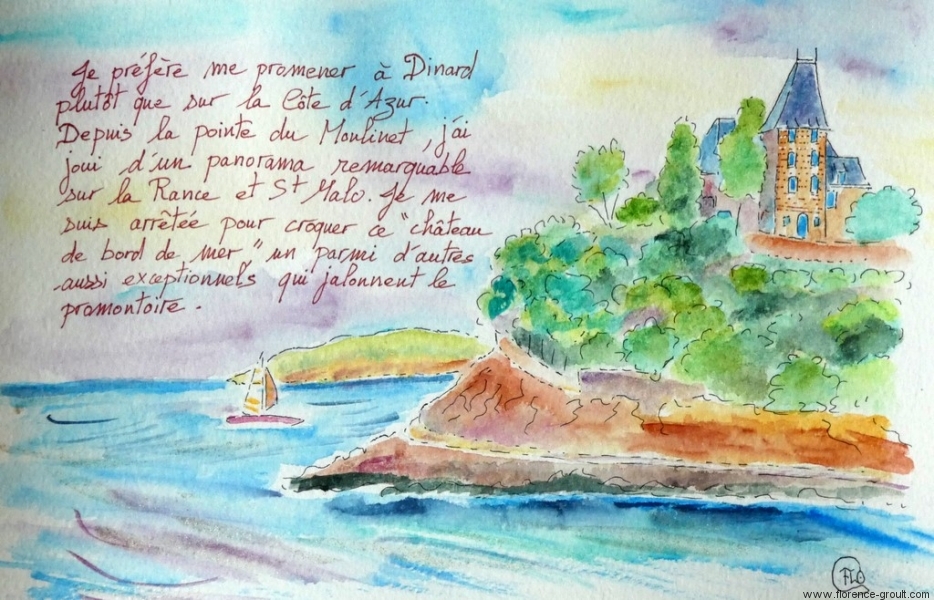 Je préfère me promener à Dinard
plutôt que sur la Côte d'Azur.
Depuis la pointe du Moulinet, j'ai
joui d'un panorama remarquable
sur la Rance et St Malo. Je me
suis arrêtée pour croquer ce "château
de bord de mer" un parmi d'autres
aussi exceptionnels qui jalonnent le
promontoire.
FLO
www.florence-groult.com